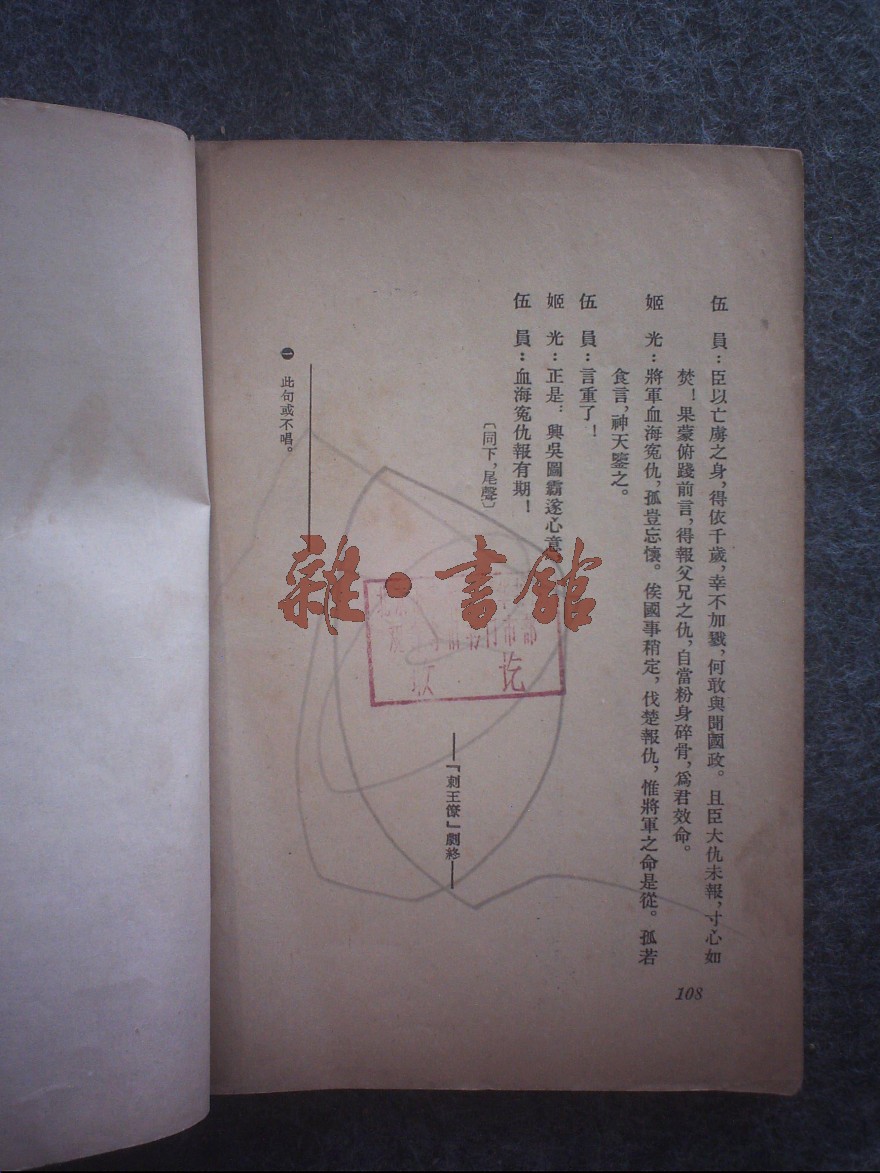 伍　員：臣以亡虜之身，得依千歲，幸不加戮，何敢與聞國政。且臣大仇未報，寸心如
焚！果蒙俯踐前言，得報父兄之仇，自當粉身碎骨，爲君效命。
姬　光：將軍血海冤仇，孤豈忘懷。俟國事稍定，伐楚報仇，惟將軍之命是從。孤若
食言，神天鑒之。
伍　員：言重了！
姬　光：正是：興吳圖霸遂心意，
伍　員：血海冤仇報有期！
〔同下，尾聲〕
——『刺王僚』劇終——
㊀ 此句或不唱。
108
雜·書館
訖